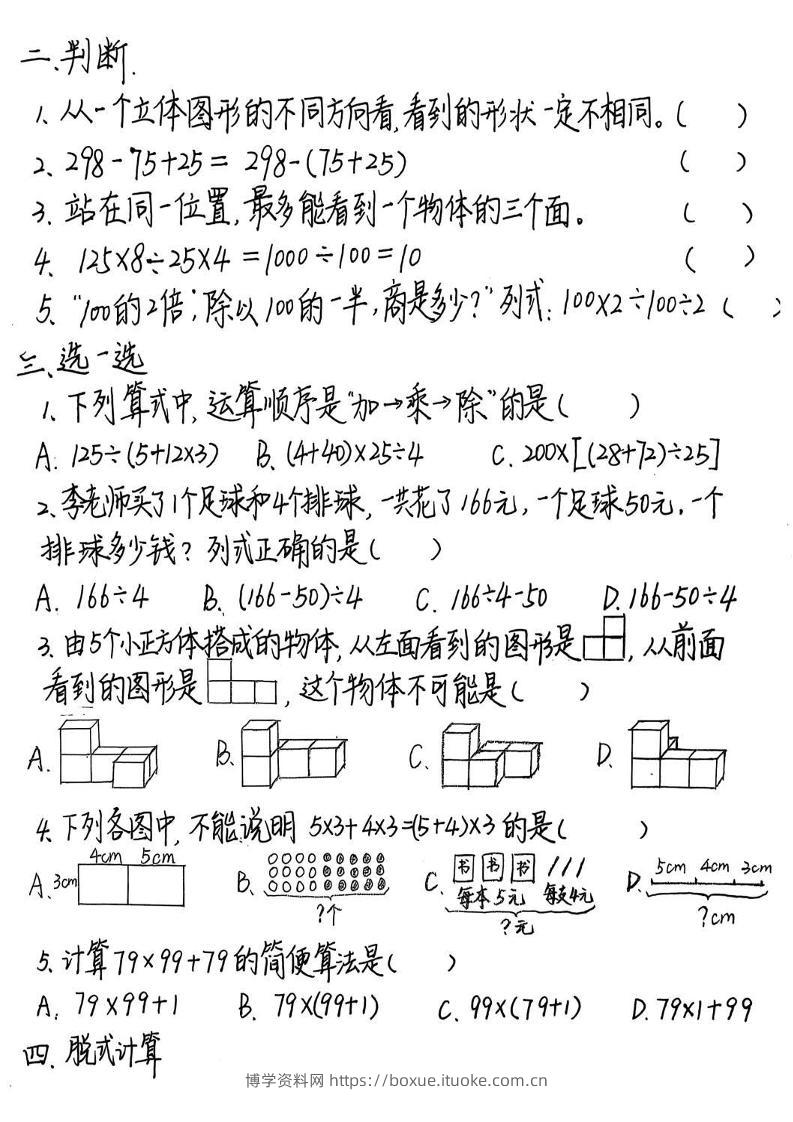 二、判断.
1. 从一个立体图形的不同方向看,看到的形状一定不相同。( )
2. 298-75+25= 298-(75+25) ( )
3. 站在同一位置,最多能看到一个物体的三个面。 ( )
4. 125×8÷25×4 =1000÷100=10 ( )
5. “100的2倍,除以100的一半,商是多少?”列式:100×2÷100÷2 ( )
三、选一选
1. 下列算式中,运算顺序是“加→乘→除”的是( )
A. 125÷(5+12×3) B. (4+40)×25÷4 C. 200×[(28+72)÷25]
2. 李老师买了1个足球和4个排球,一共花了166元,一个足球50元.一个
排球多少钱?列式正确的是( )
A. 166÷4 B. (166-50)÷4 C. 166÷4-50 D. 166-50÷4
3. 由5个小正方体搭成的物体,从左面看到的图形是 ,从前面
看到的图形是 ,这个物体不可能是( )
A. B. C. D.
4. 下列各图中,不能说明 5×3+4×3=(5+4)×3 的是( )
4cm 5cm 5cm 4cm 3cm
A. 3cm B. C. 书 书 书 D.
每本5元 每支4元
?个 ?元 ?cm
5. 计算79×99+79的简便算法是( )
A. 79×99+1 B. 79×(99+1) C. 99×(79+1) D. 79×1+99
四. 脱式计算
博学资料网 https://boxue.ituoke.com.cn